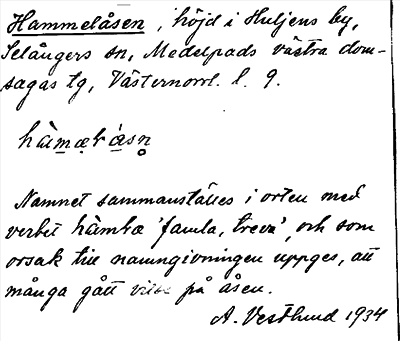 Hammelåsen, höjd i Huljens by,
Selångers sn, Medelpads västra dom-
sagas tg, Västernorrl. l. 9.
Namnet sammanställes i orten med
verbet hàmḷa 'famla, treva', och som
orsak till namngivningen uppges, att
många gått vilse på åsen.
A. Vestlund 1934